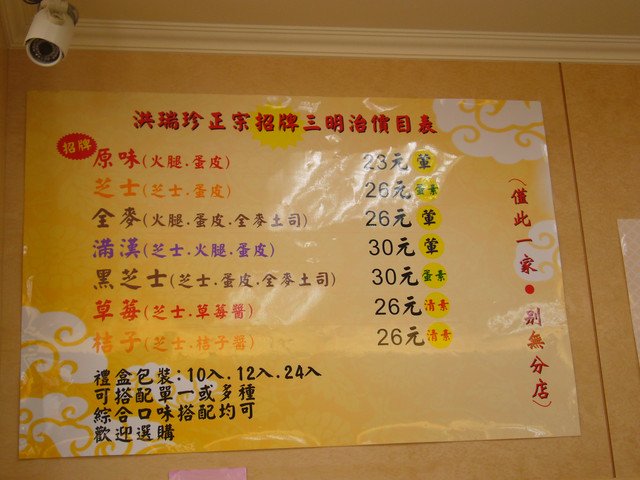 洪瑞珍正宗招牌三明治價目表
招牌
原味(火腿.蛋皮) 23元 葷
芝士(芝士.蛋皮) 26元 蛋素
全麥(火腿.蛋皮.全麥土司) 26元 葷
滿漢(芝士.火腿.蛋皮) 30元 葷
黑芝士(芝士.蛋皮.全麥土司) 30元 蛋素
草莓(芝士.草莓醬) 26元 清素
桔子(芝士.桔子醬) 26元 清素
禮盒包裝:10入.12入.24入
可搭配單一或多種
綜合口味搭配均可
歡迎選購
(僅此一家•別無分店)